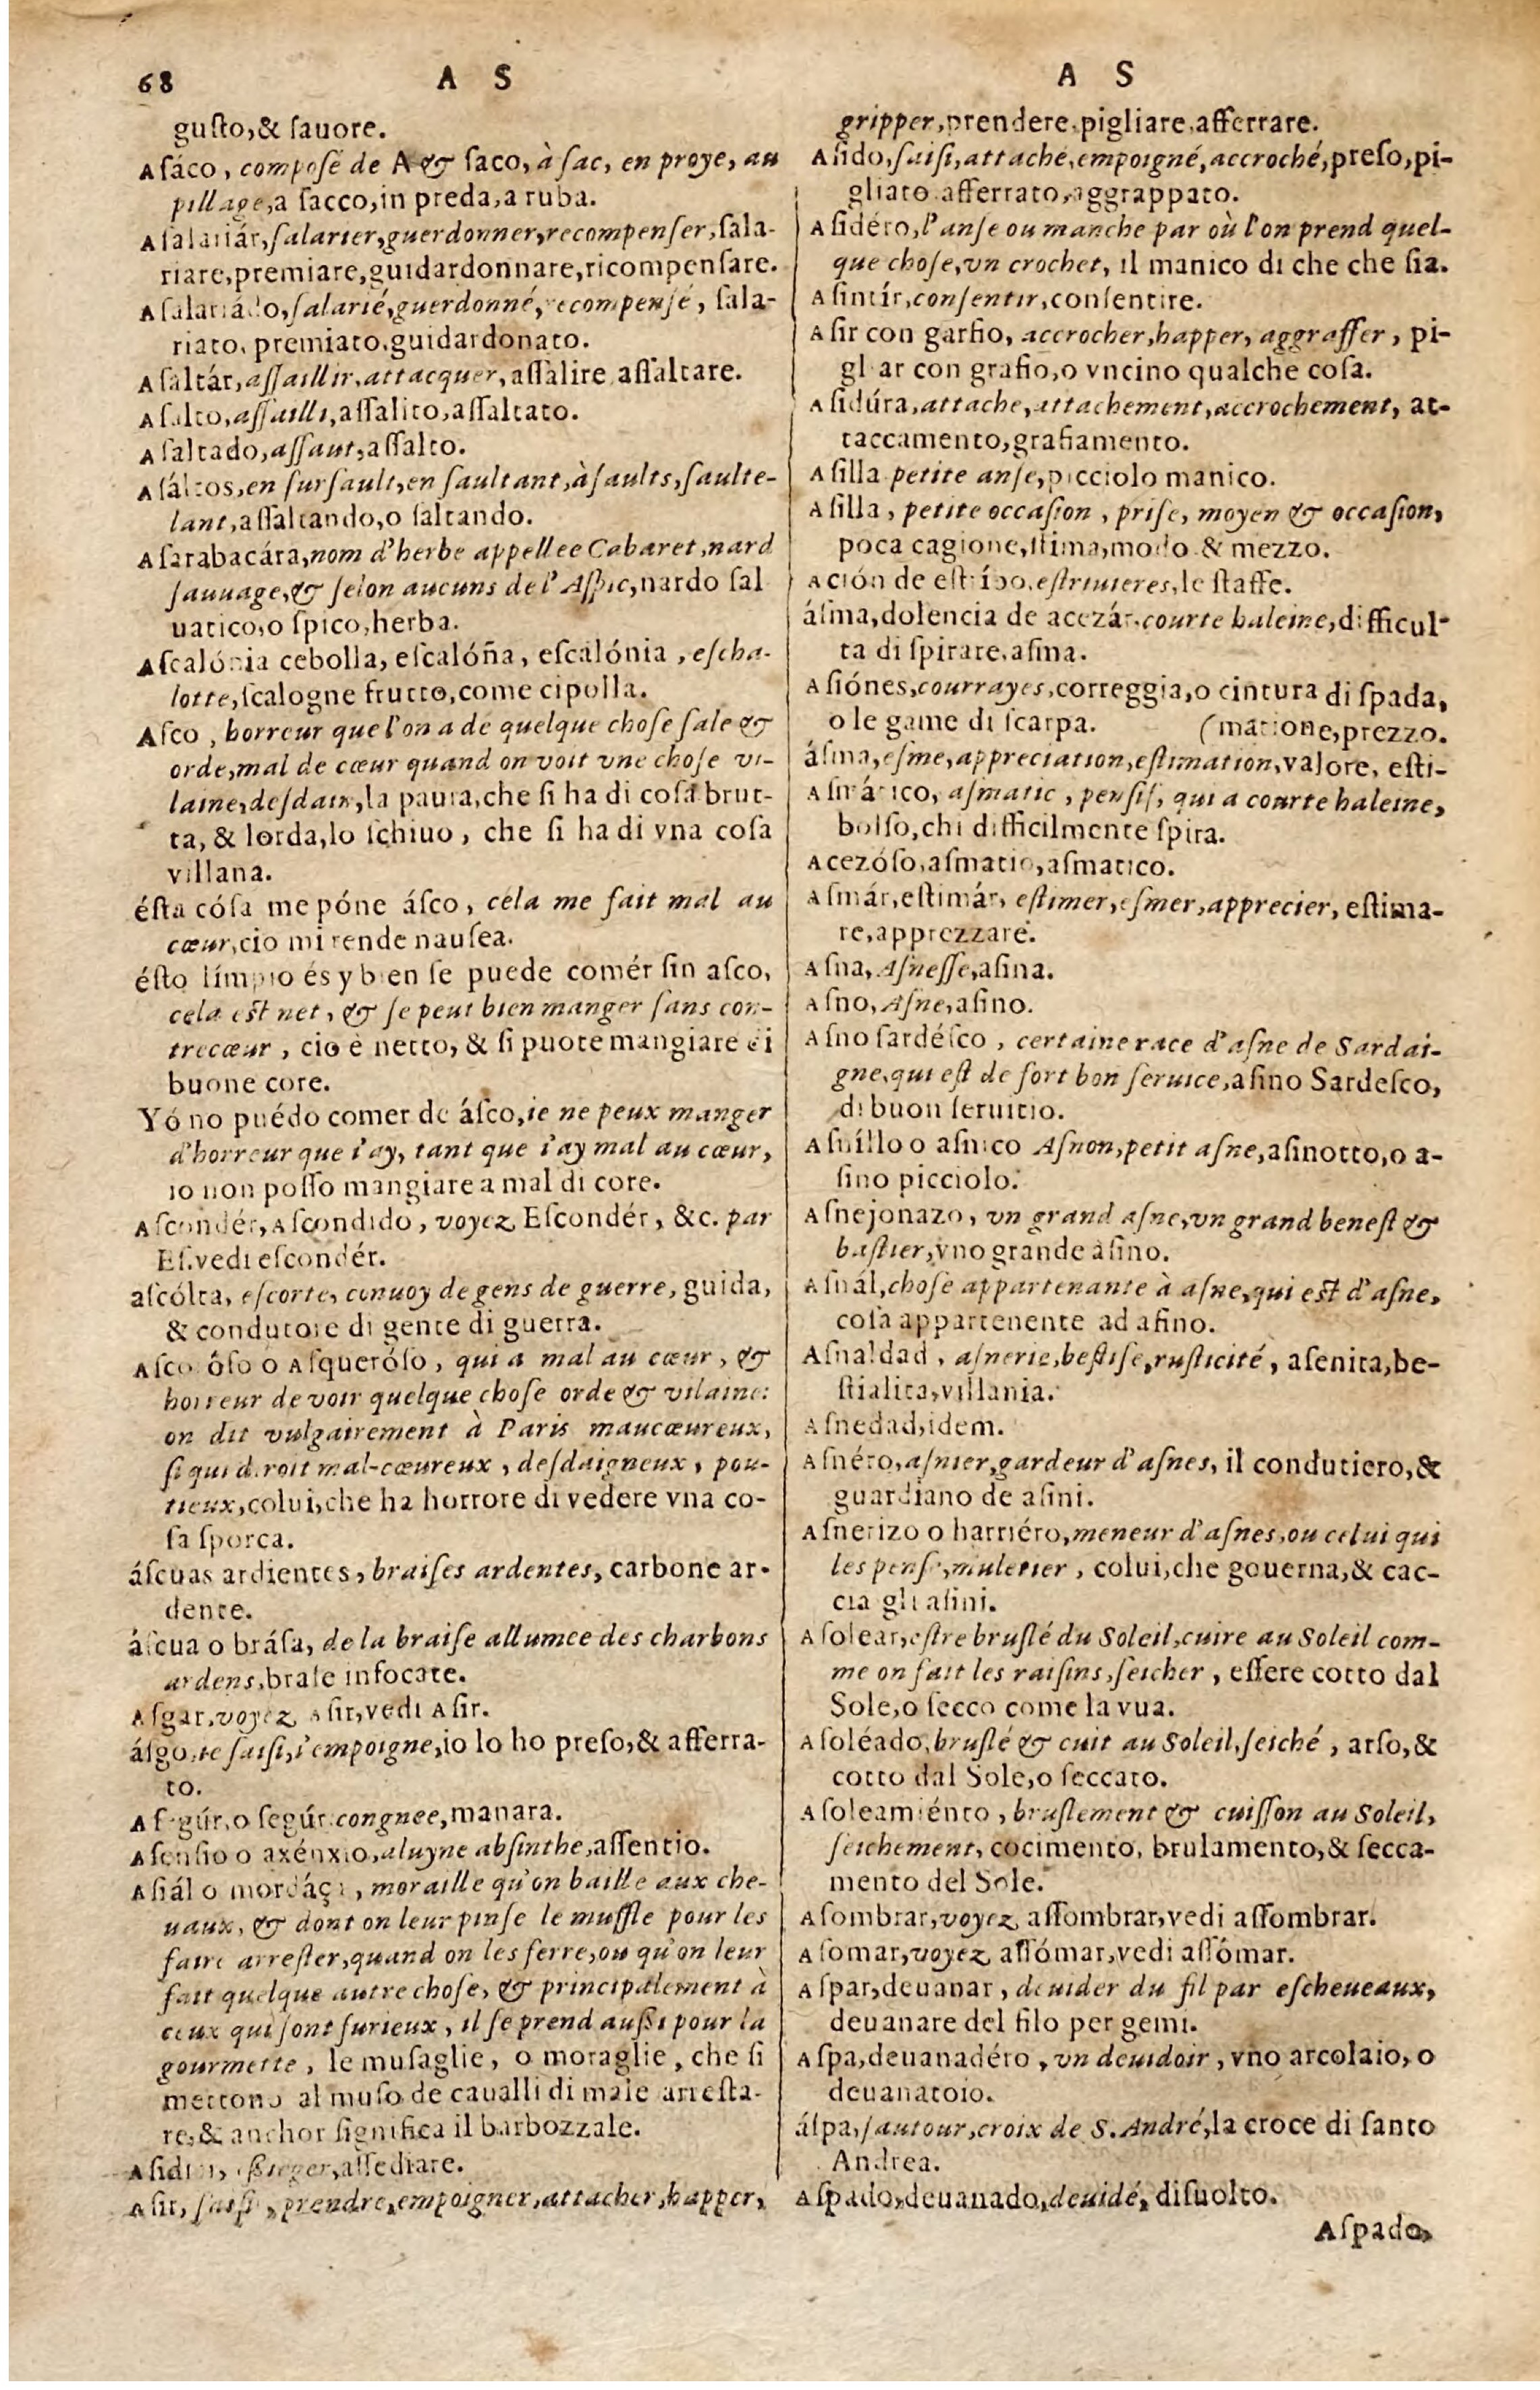 68
A S
guſto,& ſauore.
Aſáco, compoſé de A & ſaco, à ſac, en proye, au
pillage,a ſacco,in preda,a ruba.
Aſalariár,ſalarier,guerdonner,recompenſer,ſala-
riare,premiare,guidardonnare,ricompenſare.
Aſalariádo,ſalarié,guerdonné,recompenſé, ſala-
riato, premiato,guidardonato.
Aſaltár,aſſaillir,attacquer,aſſalire,aſſaltare.
Aſalto,aſſailli,aſſalito,aſſaltato.
Aſaltado,aſſaut,aſſalto.
Aſáltos,en ſurſault,en ſaultant,à ſaults,ſaulte-
lant,aſſaltando,o ſaltando.
Aſarabacára,nom d'herbe appellee Cabaret,nard
ſauuage,& ſelon aucuns de l'Aſpic,nardo ſal
uatico,o ſpico,herba.
Aſcalónia cebolla, eſcalóña, eſcalónia, eſcha-
lotte,ſcalogne frutto,come cipolla.
Aſco, horreur que l'on a de quelque choſe ſale &
orde,mal de cœur quand on voit vne choſe vi-
laine,deſdain,la paura,che ſi ha di coſa brut-
ta, & lorda,lo ſchiuo, che ſi ha di vna coſa
villana.
éſta cóſa me póne áſco, cela me fait mal au
cœur,cio mi rende nauſea.
éſto límpio és y bien ſe puede comér ſin aſco,
cela eſt net, & ſe peut bien manger ſans con-
trecœur, cio è netto, & ſi puote mangiare di
buone core.
Yó no puédo comer de áſco,ie ne peux manger
d'horreur que i'ay, tant que i'ay mal au cœur,
io non poſſo mangiare a mal di core.
Aſcondér, Aſcondido, voyez Eſcondér, &c. par
Eſ.vedi eſcondér.
aſcólta, eſcorte, conuoy de gens de guerre, guida,
& condutore di gente di guerra.
Aſcoróſo o Aſqueróſo, qui a mal au cœur, &
horreur de voir quelque choſe orde & vilaine:
on dit vulgairement à Paris maucœureux,
ſi qui diroit mal-cœureux, deſdaigneux, pou-
tieux,colui,che ha horrore di vedere vna co-
ſa ſporca.
áſcuas ardientes, braiſes ardentes, carbone ar-
dente.
áſcua o bráſa, de la braiſe allumee des charbons
ardens,braſe infocate.
Aſgar,voyez Aſir,vedi Aſir.
áſgo,ie ſaiſi,i'empoigne,io lo ho preſo,& afferra-
to.
Aſegúr,o ſegúr,congnee,manara.
Aſenſio o axénxio,aluyne abſinthe,aſſentio.
Aſiál o mordáça, moraille qu'on baille aux che-
uaux, & dont on leur pinſe le muffle pour les
faire arreſter,quand on les ferre,ou qu'on leur
fait quelque autre choſe, & principalement à
ceux qui ſont furieux, il ſe prend auſſi pour la
gourmette, le muſaglie, o moraglie, che ſi
mettono al muſo de caualli di male arreſta-
re,& anchor ſignifica il barbozzale.
aſſediare.
Aſir, ſaiſir, prendre,empoigner,attacher,happer,
A S
gripper,prendere,pigliare,afferrare.
Aſido,ſaiſi,attaché,empoigné,accroché,preſo,pi-
gliato afferrato,aggrappato.
Aſidéro,l'anſe ou manche par où l'on prend quel-
que choſe,vn crochet, il manico di che che ſia.
Aſintír,conſentir,conſentire.
Aſir con garfio, accrocher,happer, aggraffer, pi-
gliar con grafio,o vncino qualche coſa.
Aſidúra,attache,attachement,accrochement, at-
taccamento,grafiamento.
Aſilla petite anſe,picciolo manico.
Aſilla, petite occaſion, priſe, moyen & occaſion,
poca cagione,ſtima,modo & mezzo.
Ación de eſtríbo,eſtriuieres,le ſtaffe.
áſma,dolencia de acezár,courte haleine,difficul-
ta di ſpirare,aſma.
Aſiónes,courrayes,correggia,o cintura di ſpada,
o le game di ſcarpa. (matione,prezzo.
áſma,eſme,appreciation,eſtimation,valore, eſti-
Aſmático, aſmatic, penſif, qui a courte haleine,
bolſo,chi difficilmente ſpira.
Acezóſo,aſmatio,aſmatico.
Aſmár,eſtimár, eſtimer,eſmer,apprecier, eſtima-
re,apprezzare.
Aſna, Aſneſſe,aſina.
Aſno, Aſne,aſino.
Aſno ſardéſco, certaine race d'aſne de Sardai-
gne,qui eſt de fort bon ſeruice,aſino Sardeſco,
di buon ſeruitio.
Aſníllo o aſnico Aſnon,petit aſne,aſinotto,o a-
ſino picciolo.
Aſnejonazo, vn grand aſne,vn grand beneſt &
baſtier,vno grande aſino.
Aſnál,choſe appartenante à aſne,qui eſt d'aſne,
coſa appartenente ad aſino.
Aſnaldad, aſnerie,beſtiſe,ruſticité, aſenita,be-
ſtialita,villania.
Aſnedad,idem.
Aſnéro,aſnier,gardeur d'aſnes, il condutiero,&
guardiano de aſini.
Aſnerizo o harriéro,meneur d'aſnes,ou celui qui
les penſe,muletier, colui,che gouerna,& cac-
cia gli aſini.
Aſolear,eſtre bruſlé du Soleil,cuire au Soleil com-
me on fait les raiſins,ſeicher, eſſere cotto dal
Sole,o ſecco come la vua.
Aſoléado,bruſlé & cuit au Soleil,ſeiché, arſo,&
cotto dal Sole,o ſeccato.
Aſoleamiénto, bruſlement & cuiſſon au Soleil,
ſeichement, cocimento, brulamento,& ſecca-
mento del Sole.
Aſombrar,voyez aſſombrar,vedi aſſombrar.
Aſomar,voyez aſſómar,vedi aſſómar.
Aſpar,deuanar, deuider du fil par eſcheueaux,
deuanare del filo per gemi.
Aſpa,deuanadéro, vn deuidoir, vno arcolaio, o
deuanatoio.
áſpa,ſautour,croix de S. André,la croce di ſanto
Andrea.
Aſpado,deuanado,deuidé, diſuolto.
Aſpado,